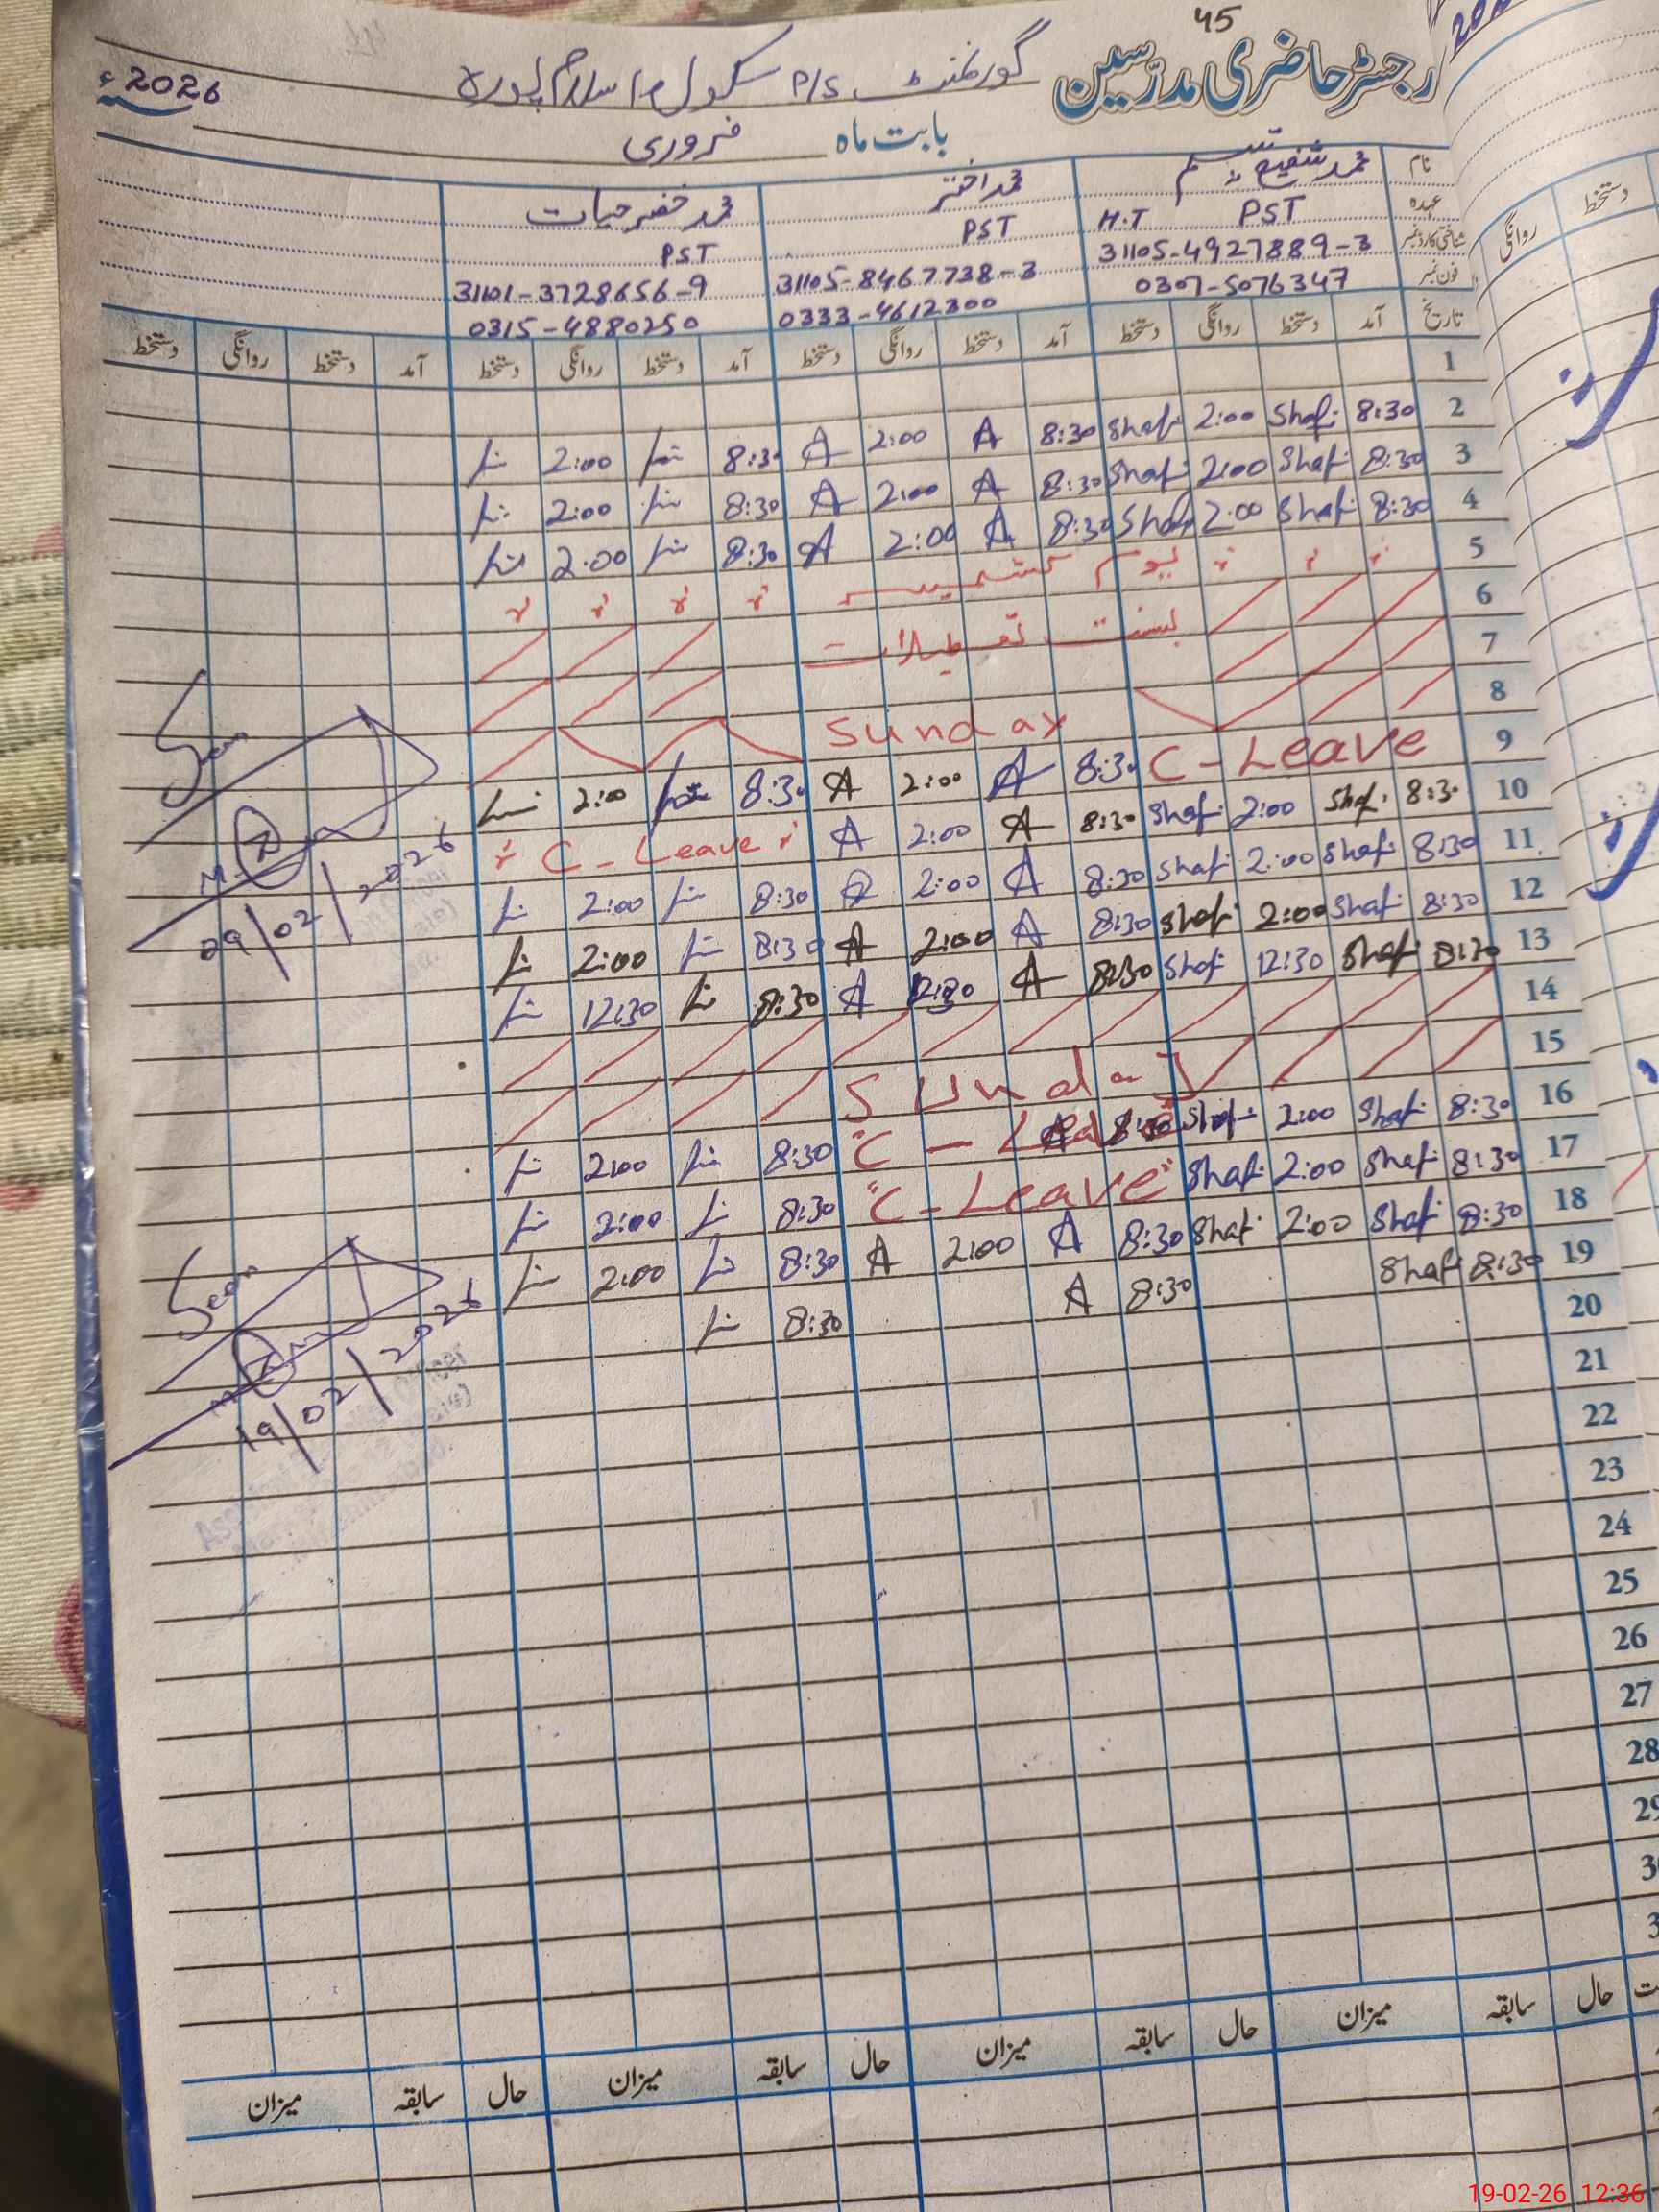 45
رجسٹر حاضری مدرّسین گورنمنٹ P/S سکول اسلام پورہ 2026ء
بابت ماہ فروری
نام محمد شفیع تبسم محمد اختر محمد خضر حیات
عہدہ PST H.T PST PST
شناختی کارڈ نمبر 31105-4927889-3 31105-8467738-3 31101-3728656-9
فون نمبر 0307-5076347 0333-4612300 0315-4880250
تاریخ آمد دستخط روانگی دستخط آمد دستخط روانگی دستخط آمد دستخط روانگی دستخط آمد دستخط روانگی دستخط
1
2 8:30 Shafi 2:00 Shafi 8:30 A 2:00 A 8:30 2:00
3 8:30 Shafi 2:00 Shafi 8:30 A 2:00 A 8:30 2:00
4 8:30 Shafi 2:00 Shafi 8:30 A 2:00 A 8:30 2:00
5 یوم کشمیر
6 بسنت تعطیلات
7
8 Sunday
9 C-Leave 8:30 A 2:00 A 8:30 2:00
10 8:30 Shafi 2:00 Shafi 8:30 A 2:00 A C-Leave
11 8:30 Shafi 2:00 Shafi 8:30 A 2:00 A 8:30 2:00
12 8:30 Shafi 2:00 Shafi 8:30 A 2:00 A 8:30 2:00
13 8:30 Shafi 12:30 Shafi 8:30 A 12:30 A 8:30 12:30
14
15 Sunday
16 8:30 Shafi 2:00 Shafi 8:30 A "C-Leave" 8:30 2:00
17 8:30 Shafi 2:00 Shafi "C-Leave" 8:30 2:00
18 8:30 Shafi 2:00 Shafi 8:30 A 2:00 A 8:30 2:00
19 8:30 Shafi 8:30 A 8:30
20
21
22
23
24
25
26
27
28
29
Seen
09/02/2026
Seen
19/02/2026
حال سابقہ میزان حال سابقہ میزان حال سابقہ میزان حال سابقہ میزان
دستخط روانگی
19-02-26 12:36